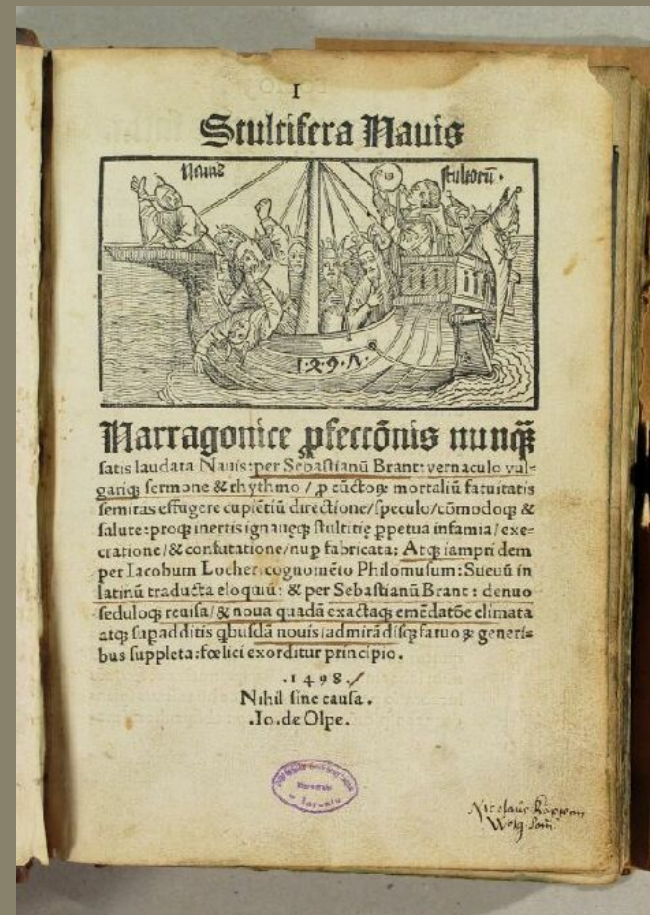 I
Stultifera Nauis
Nauis stultorū.
1.2.9.Λ.
Narragonice ꝓfectiōnis nunqȝ̄
satis laudata Nauis: per Sebastianū Brant: vernaculo vul-
gariqȝ sermone & rhythmo / ꝓ cūctoꝝ mortaliū fatuitatis
semitas effugere cupiētiū directione / speculo / cōmodoqȝ &
salute: proqȝ inertis ignaueqȝ stultitię ꝑpetua infamia / exe-
cratione / & confutatione / nuꝑ fabricata: Atqȝ iampridem
per Iacobum Locher cognomēto Philomusum: Sueuū in
latinū traducta eloquiū: & per Sebastianū Brant: denuo
seduloqȝ reuisa / & noua quadā exactaqȝ emēdatōe elimata
atqȝ suꝑadditis qbusdā nouis / admirādisqȝ fatuoꝝ generi-
bus suppleta: fœlici exorditur principio.
.1498./
Nihil sine causa.
.Io. de Olpe.
Nicolaus